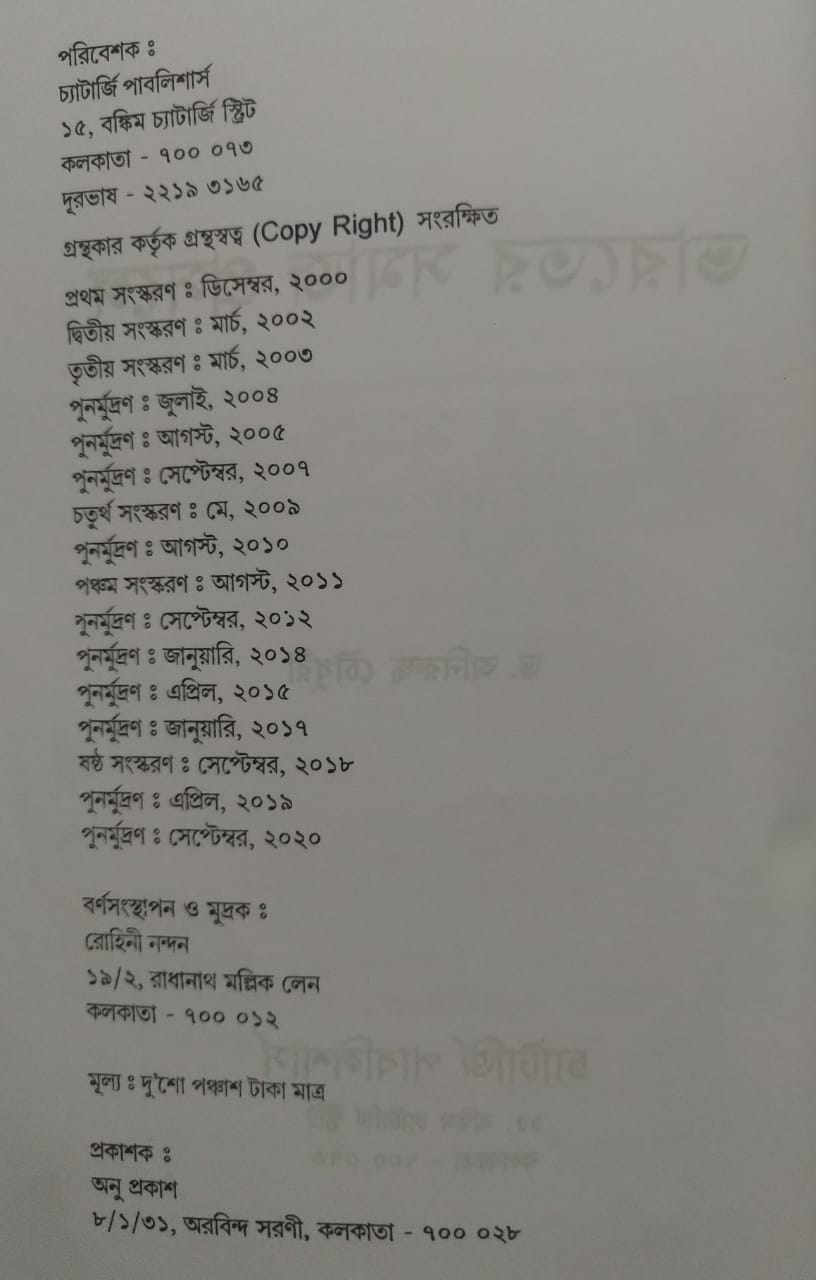 পরিবেশক ঃ
চ্যাটার্জি পাবলিশার্স
১৫, বঙ্কিম চ্যাটার্জি স্ট্রিট
কলকাতা - ৭০০ ০৭৩
দূরভাষ - ২২১৯ ৩১৬৫
গ্রন্থকার কর্তৃক গ্রন্থস্বত্ব (Copy Right) সংরক্ষিত
প্রথম সংস্করণ ঃ ডিসেম্বর, ২০০০
দ্বিতীয় সংস্করণ ঃ মার্চ, ২০০২
তৃতীয় সংস্করণ ঃ মার্চ, ২০০৩
পূনর্মূদ্রণ ঃ জুলাই, ২০০৪
পূনর্মূদ্রণ ঃ আগস্ট, ২০০৫
পূনর্মূদ্রণ ঃ সেপ্টেম্বর, ২০০৭
চতুর্থ সংস্করণ ঃ মে, ২০০৯
পূনর্মূদ্রণ ঃ আগস্ট, ২০১০
পঞ্চম সংস্করণ ঃ আগস্ট, ২০১১
পূনর্মূদ্রণ ঃ সেপ্টেম্বর, ২০১২
পূনর্মূদ্রণ ঃ জানুয়ারি, ২০১৪
পূনর্মূদ্রণ ঃ এপ্রিল, ২০১৫
পূনর্মূদ্রণ ঃ জানুয়ারি, ২০১৭
ষষ্ঠ সংস্করণ ঃ সেপ্টেম্বর, ২০১৮
পূনর্মূদ্রণ ঃ এপ্রিল, ২০১৯
পূনর্মূদ্রণ ঃ সেপ্টেম্বর, ২০২০
বর্ণসংস্থাপন ও মূদ্রক ঃ
রোহিনী নন্দন
১৯/২, রাধানাথ মল্লিক লেন
কলকাতা - ৭০০ ০১২
মূল্য ঃ দু'শো পঞ্চাশ টাকা মাত্র
প্রকাশক ঃ
অনু প্রকাশ
৮/১/৩১, অরবিন্দ সরণী, কলকাতা - ৭০০ ০২৮